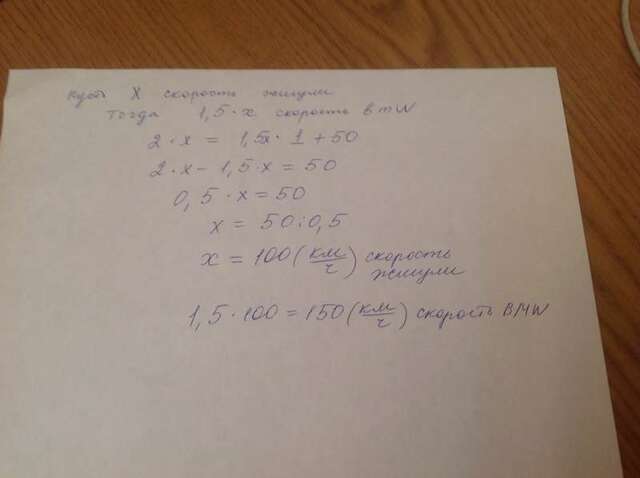 Пусть X скорость жигули
Тогда 1,5·x скорость BMW
2·x = 1,5x·1+50
2·x-1,5·x=50
0,5·x=50
x = 50:0,5
x = 100(км/ч) скорость
жигули
1,5·100=150(км/ч) скорость BMW